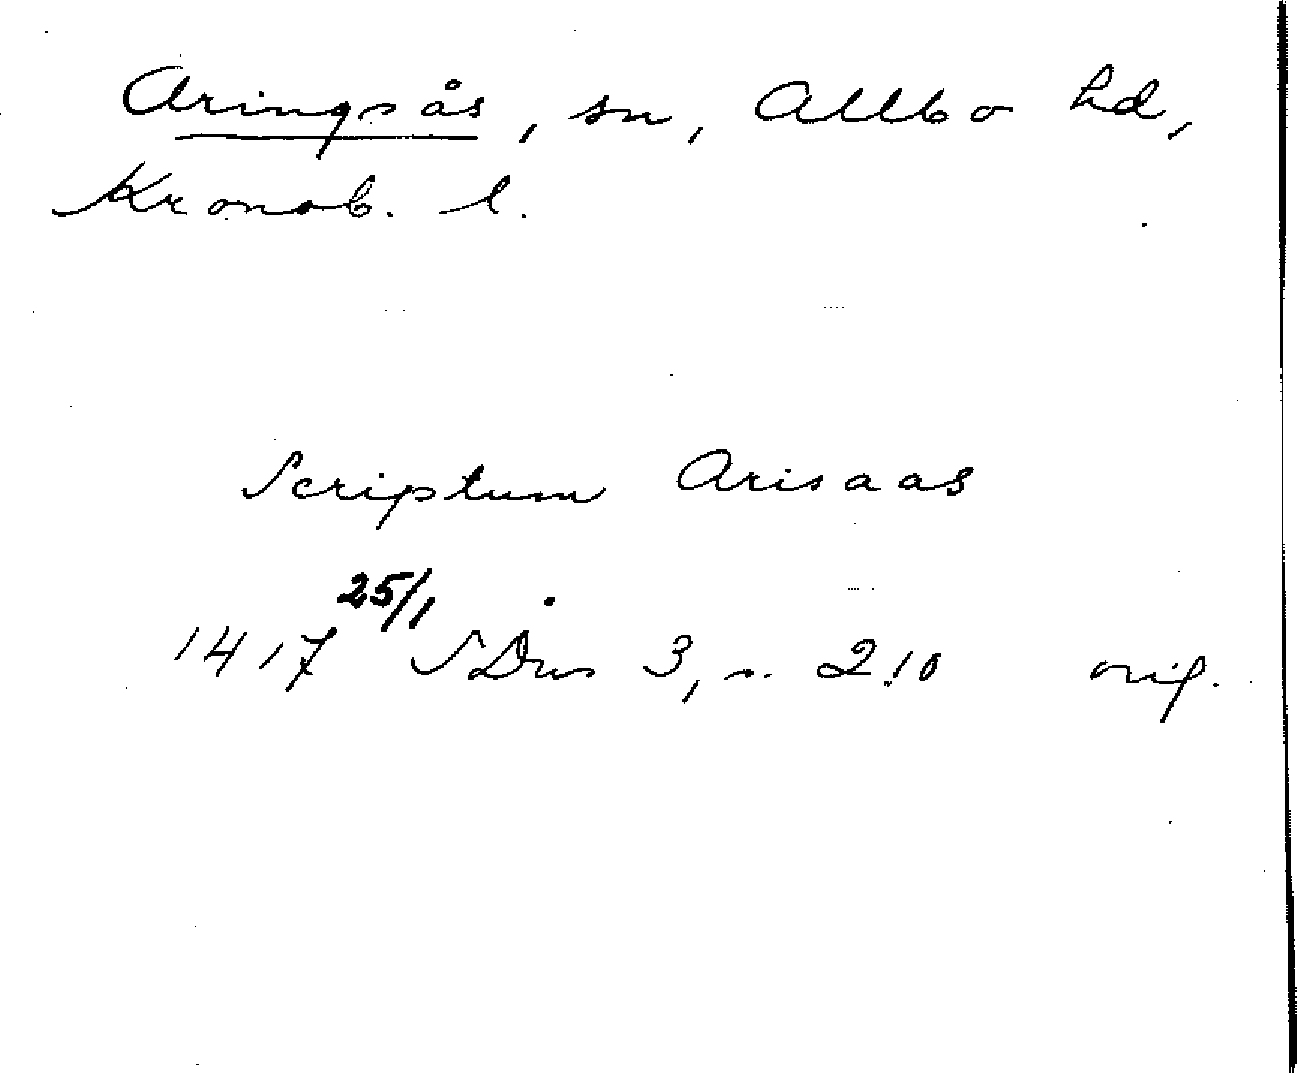 Aringsås, sn, Allbo hd,
Kronob. l.
Scriptum Arisaas
1417 25/1 SDns 3, s. 210 orig.